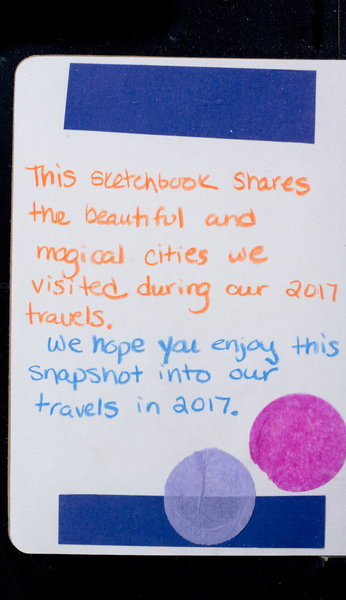 This sketchbook shares
the beautiful and
magical cities we
visited during our 2017
travels.
We hope you enjoy this
snapshot into our
travels in 2017.